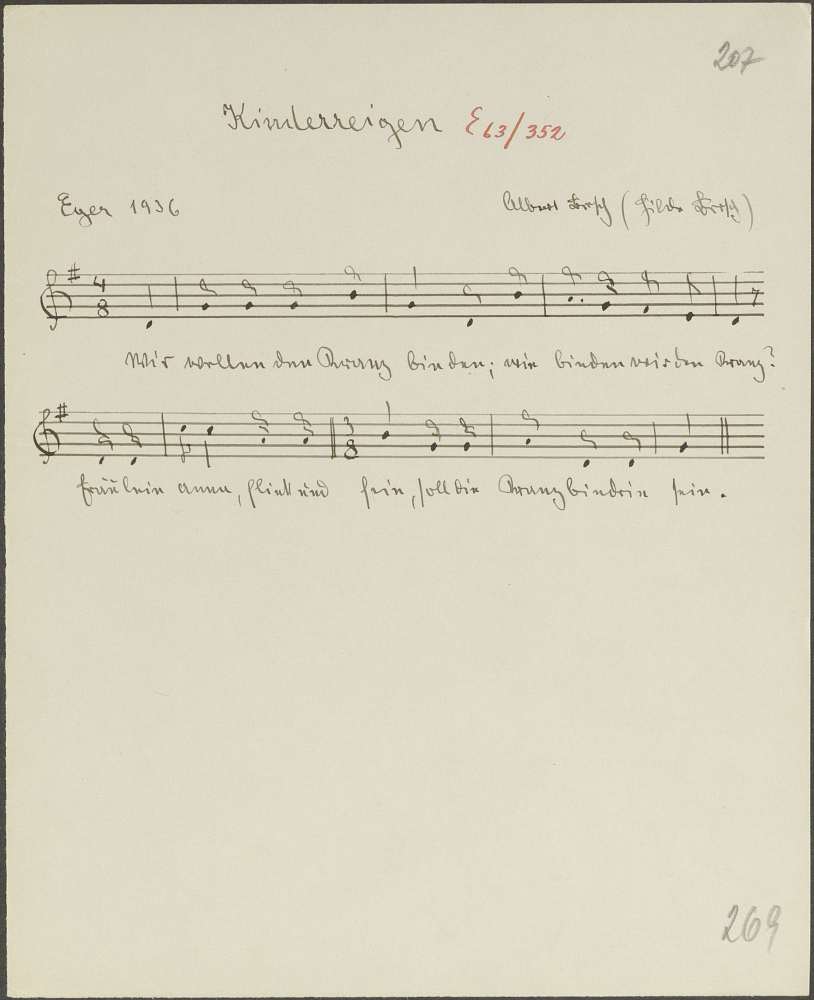 207
Kinderreigen E 63/352
Eger 1936 Albert Brosch (Hilde Brosch)
4
8
Wir wollen den Kranz binden; wie binden wir den Kranz?
3
8
Fräulein Anna, flink und fein, soll die Kranzbindrin sein.
269